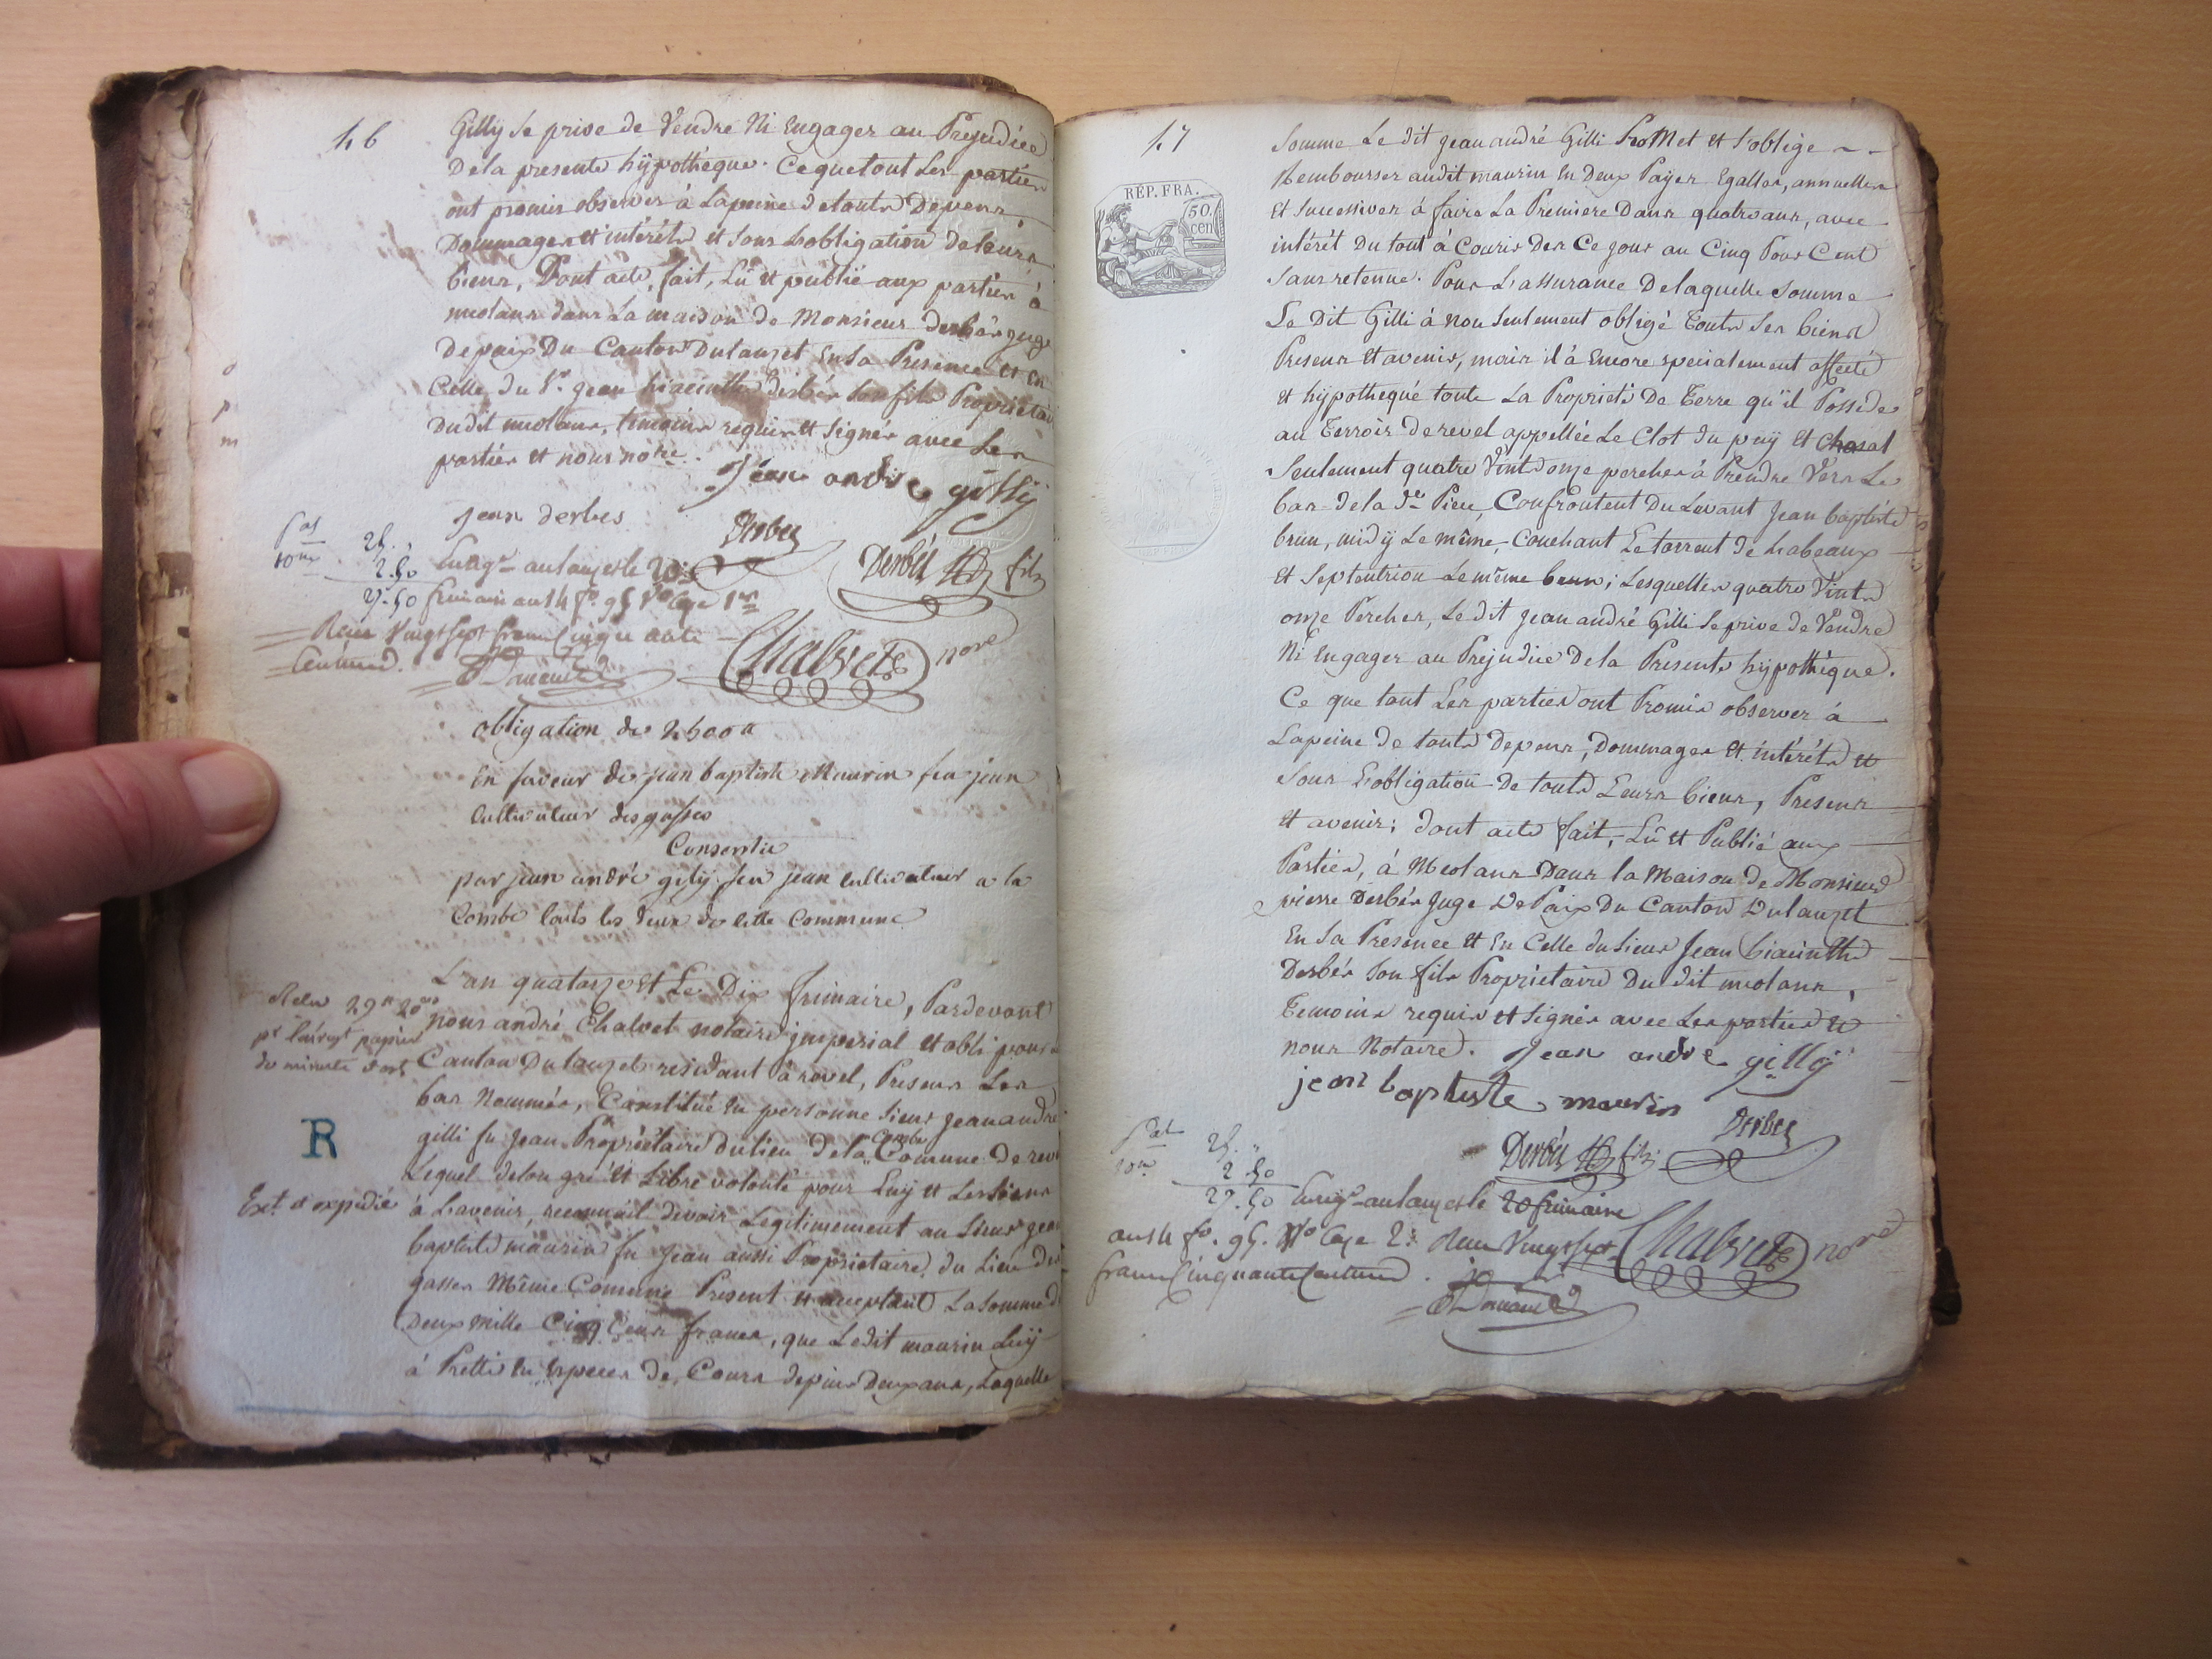 46
Gilly se prive de Vendre Ni Engager au Prejudice
De la presente hÿpothéque. Ce que tout Les parties
ont promis observer à Lapeine de touts Depens,
Dommages et intéréts et Sous Lobligation de leurs
biens, Dont acte, fait, Lû et publié aux parties à
meolans dans La maison de Monsieur derbés juge
de paix Du Canton Dulauzet En Sa Presence et En
Celle du Sr. jean hiacinthe derbés Son fils Proprietaire
Dudit meolans, temoins requis et Signés avec Les
parties et nous nore.
Jean andre gillÿ
jean derbes
Derbes
Derbés fils
25.
2.50
27.50
Enregr. au lauzet le 20
frimaire an 14 fo. 95 Vo Case 1re
Recu Vingt Sept francs Cinquante
Centimes.
Chalvet nore
obligation de 2500 fr
En faveur de jean baptiste Maurin feu jean
Cultivateur des gasses
Consentie
par jean andré gilÿ feu jean Cultivateur a la
Combe touts les deux de cette Commune
L'an quatorze et Le Dix frimaire, Pardevant
nous andré Chalvet notaire jmperial etabli pour le
Canton Dulauzet residant à revel, Presens Les
bas Nommés, Constitué En personne Sieur Jean andré
gilli fu Jean Propriétaire du lieu de la Combe Comune de revel
Lequel de Son gré et Libre volonté pour Luÿ et Les Siens
à Lavenir, reconnoit devoir Legitimement au Sieur jean
baptiste maurin fu Jean aussi Proprietaire du Lieu des
gasses Même Comune Present et acceptant La Somme de
Deux mille Cinq Cens francs, que Ledit maurin Luÿ
à Pretté En Especes de Cours depuis Deux ans, Laquelle
Recu
papier
de minute
R
Ext. et expedié
47
RÉP. FRA.
50.
cen
Somme Le dit Jean andré Gilli ProMet et S'oblige
Rembourser audit maurin En Deux Payes Egalles, annuelles
Et Successives à faire La Premiere Dans quatre ans, avec
intérét Du tout à Courir Des Ce jour au Cinq Pour Cent
Sans retenue. Pour L'assurance De laquelle Somme
Le Dit Gilli à Non Seulement obligé Touts Ses biens
Presens Et avenir, mais il à Encore Specialement affecté
et hÿpothequé toute La Proprieté De Terre qu'il Possede
au Terroir de revel appellée Le Clot du puÿ Et Chasal
Seulement quatre Vints onze perches à Prendre Vers Le
bas de la de. Piece, Confrontent Du Levant Jean baptiste
brun, midÿ Le même, Couchant Le torrent de Labeaux
et Septentrion Le même brun; Lesquelles quatre Vints
onze Perches, Le dit Jean andré Gilli Se prive de Vendre
Ni Engager au Prejudice De la Presente hÿpothéque.
Ce que tout Les parties ont Promis observer à
Lapeine de touts Depens, Dommages Et intéréts et
Sous Lobligation de touts Leurs biens, Presens
et avenir; dont acte fait, Lû et Publié aux
Parties, à Meolans Dans la Maison de Monsieur
pierre Derbés Juge De Paix Du Canton Dulauzet
En Sa Presence Et En Celle du Sieur Jean hiacinthe
Derbés Son fils Proprietaire Du dit meolans,
Temoins requis et Signés avec Les parties et
nous Notaire.
Jean andre gillÿ
jean baptiste maurin
Derbes
Derbés fils
25.
2.50
27.50
Enregr. au lauzet le 20 frimaire
an 14 fo. 95. Vo Case 2. Recu Vingt Sept
francs Cinquante Centimes.
Chalvet nore